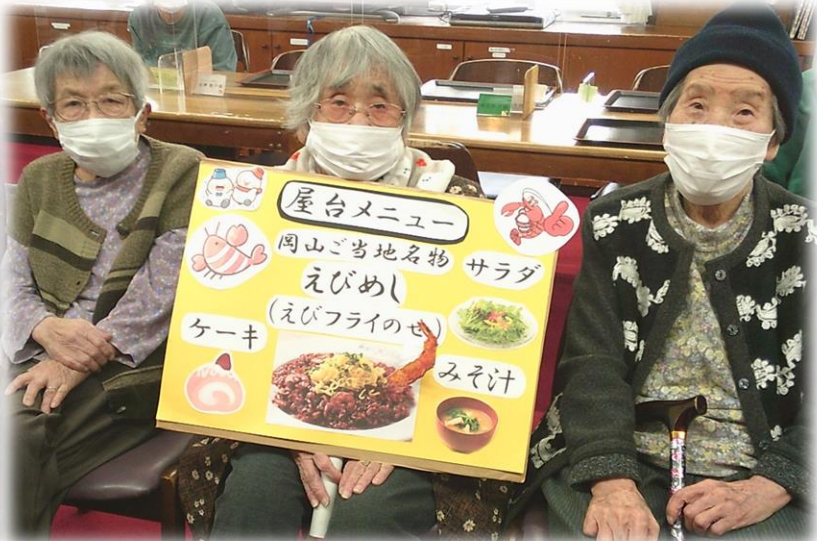 屋台メニュー
岡山ご当地名物
えびめし
(えびフライのせ)
サラダ
ケーキ
みそ汁